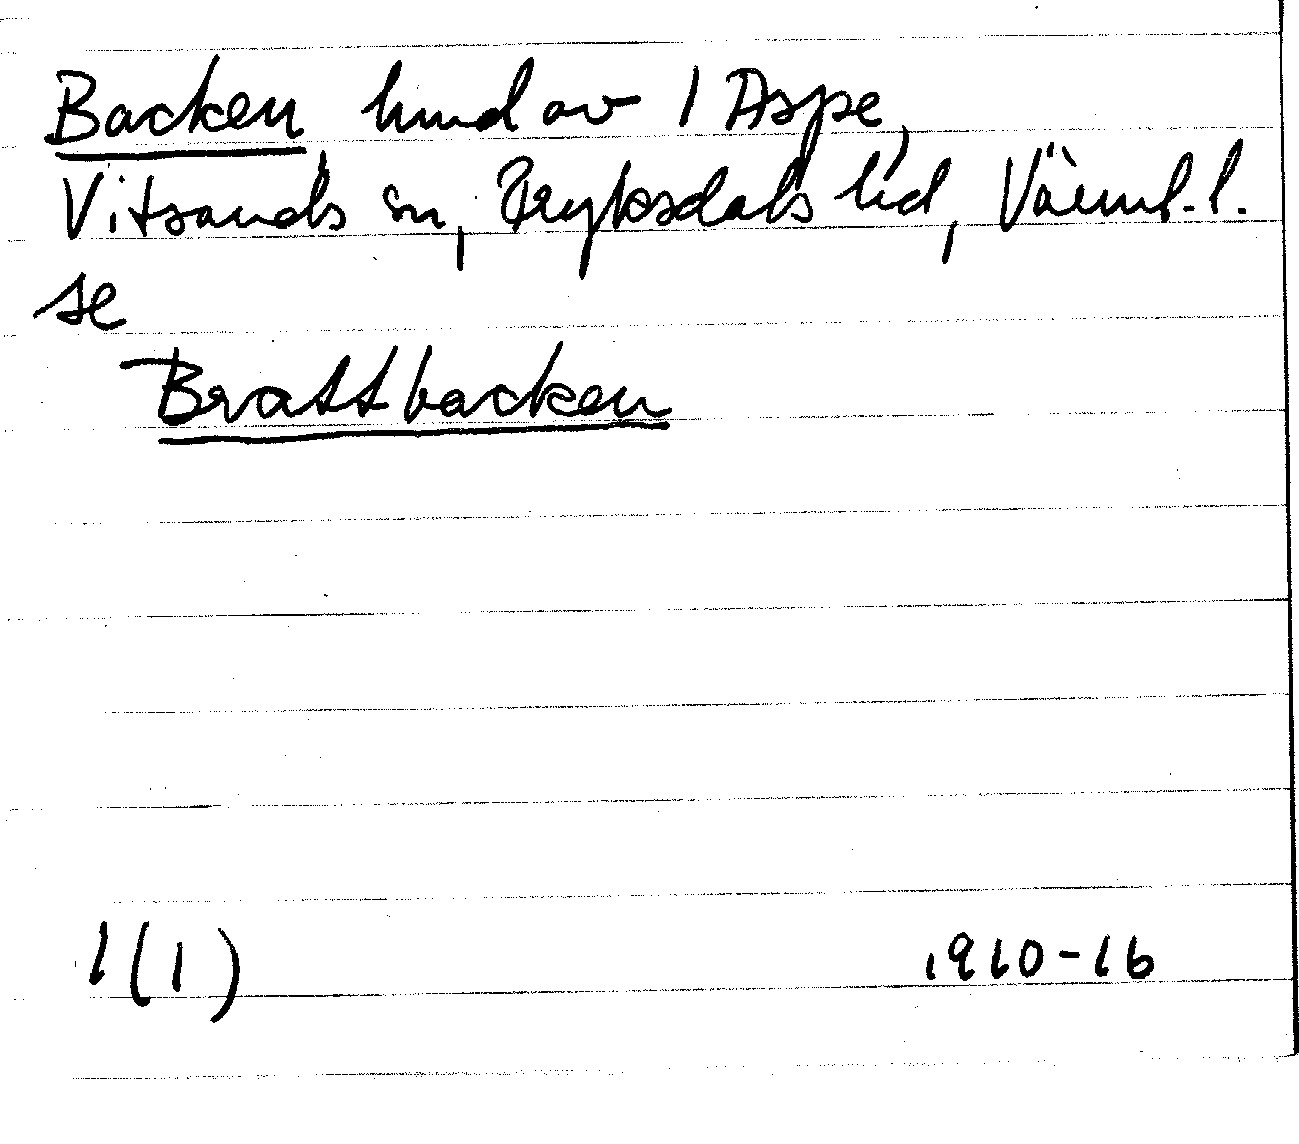 Backen hmd av 1 Aspe,
Vitsands sn, Fryksdals hd, Värml. l.
se
Brattbacken
1(1) 1910-16